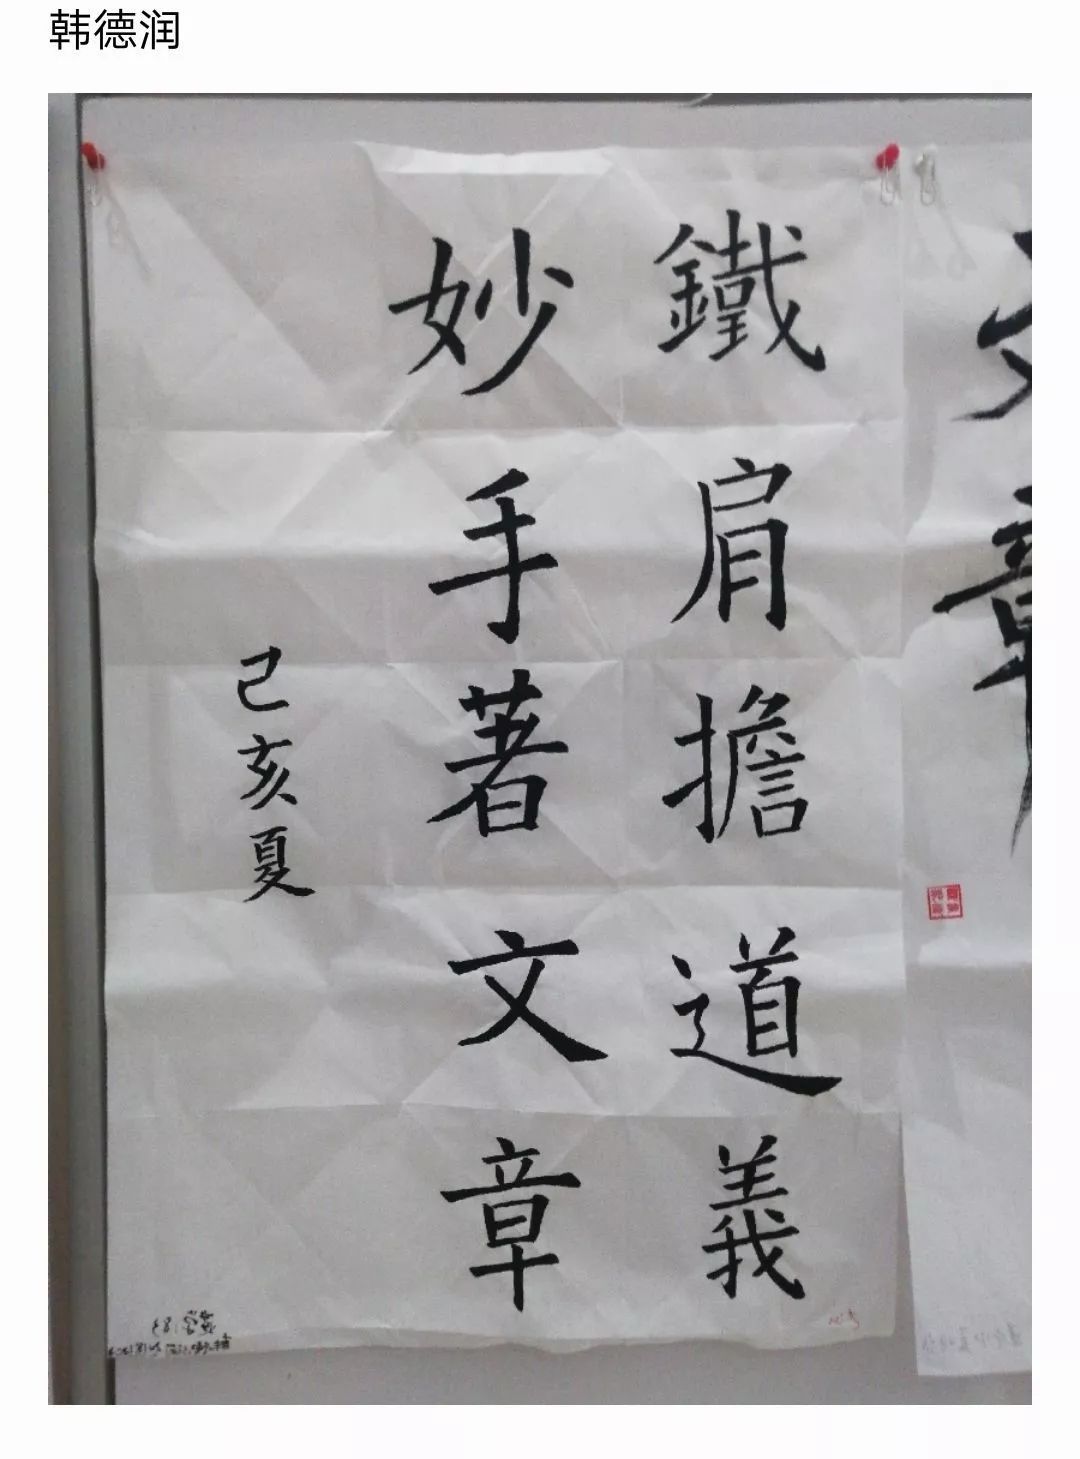 韩德润
鐵肩擔道義
妙手著文章
己亥夏
文章